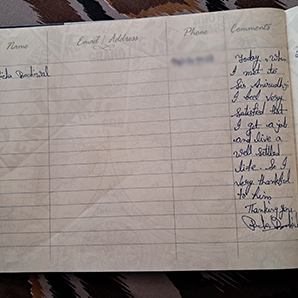 Name Email / Address Phone Comments
Today, When
I met to
Sir Anirudh
I feel very
satisfied that
I get a job
and live a
well settled
life. So I
very thankful
to him.
Thanking you